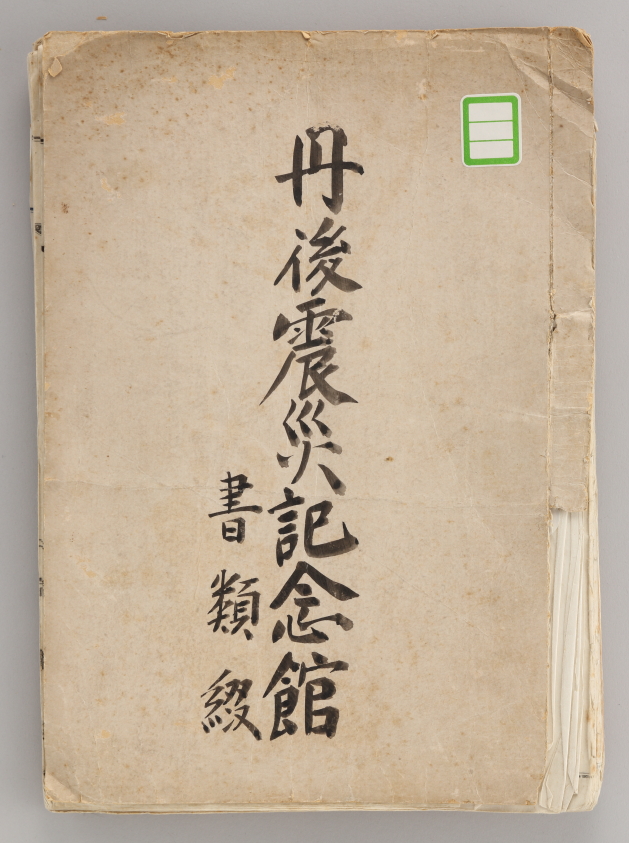 丹後震災記念館
書類綴